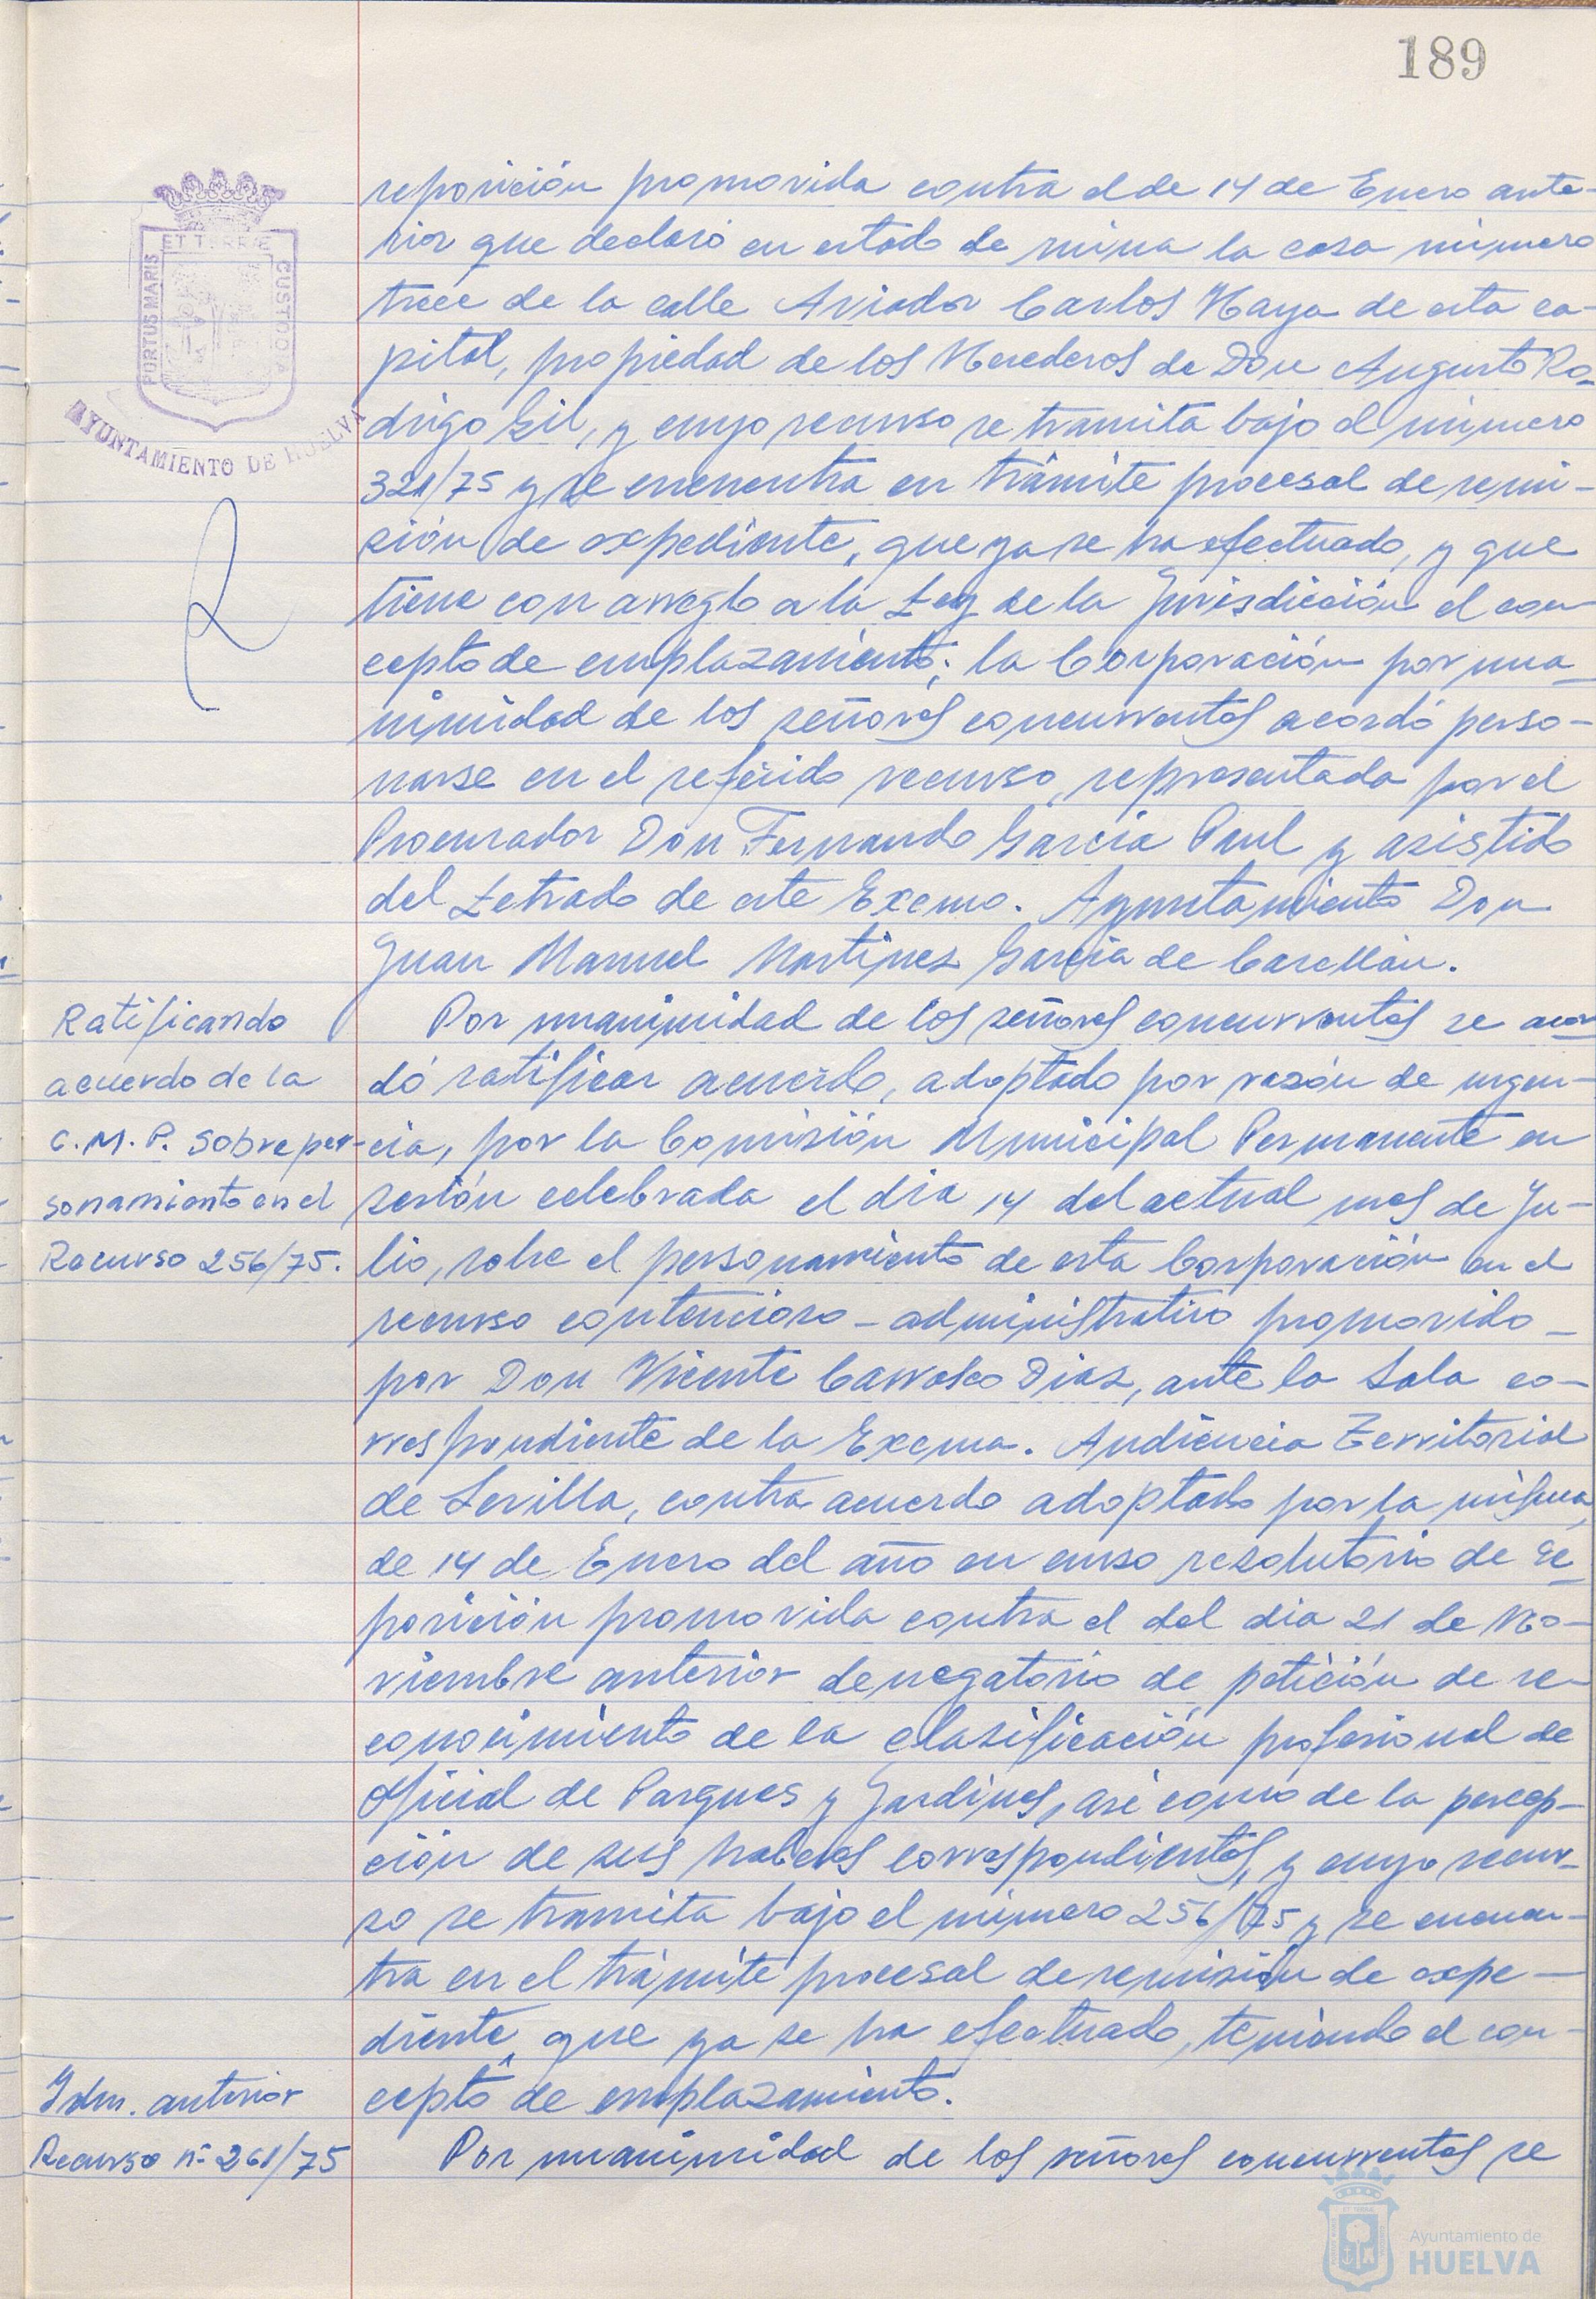 189
PORTUS MARIS
ET TERRÆ
CUSTODIA
AYUNTAMIENTO DE HUELVA
reposición promovida contra el de 14 de Enero ante-
rior que declaró en estado de ruina la casa número
trece de la calle Aviador Carlos Haya de esta ca-
pital, propiedad de los Herederos de Don Augusto Ro-
drigo Gil, y cuyo recurso se tramita bajo el número
321/75 y se encuentra en trámite procesal de remi-
sión de expediente, que ya se ha efectuado, y que
tiene con arreglo a la Ley de la Jurisdicción el con
cepto de emplazamiento; la Corporación por una-
nimidad de los señores concurrentes acordó perso-
narse en el referido recurso, representada por el
Procurador Don Fernando García Paul y asistido
del Letrado de este Excmo. Ayuntamiento Don
Juan Manuel Martínez García de Casellán.
Ratificando
acuerdo de la
C.M.P. sobre per-
sonamiento en el
Recurso 256/75.
Por unanimidad de los señores concurrentes se acor
dó ratificar acuerdo, adoptado por razón de urgen-
cia, por la Comisión Municipal Permanente en
sesión celebrada el día 14 del actual mes de Ju-
lio, sobre el personamiento de esta Corporación en el
recurso contencioso-administrativo promovido-
por Don Vicente Carrasco Diaz, ante la Sala co-
rrespondiente de la Excma. Audiencia Territorial
de Sevilla, contra acuerdo adoptado por la misma,
de 14 de Enero del año en curso resolutorio de re-
posición promovida contra el del dia 21 de No-
viembre anterior denegatorio de petición de re-
conocimiento de la clasificación profesional de
Oficial de Parques y Jardines, así como de la percep-
ción de sus haberes correspondientes, y cuyo recur-
so se tramita bajo el número 256/75 y se encuen-
tra en el trámite procesal de remisión de expe-
diente, que ya se ha efectuado, teniendo el con-
cepto de emplazamiento.
Idm. anterior
Recurso nº 261/75
Por unanimidad de los señores concurrentes se
Ayuntamiento de
HUELVA